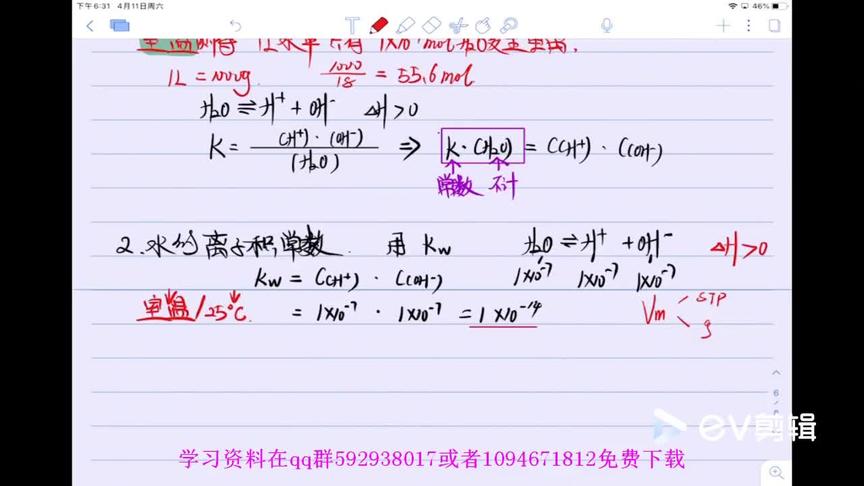 下午6:31 4月11日周六 46%
室温测得 1L水中只有 1×10⁻⁷mol H₂O发生电离.
1L = 1000g. 1000/18 = 55.6mol
H₂O ⇌ H⁺ + OH⁻ ΔH>0
K = C(H⁺)·C(OH⁻)/C(H₂O) ⇒ K·C(H₂O) = C(H⁺)·C(OH⁻)
常数 不计
2.水的离子积常数. 用 Kw H₂O ⇌ H⁺ + OH⁻ ΔH>0
Kw = C(H⁺)·C(OH⁻) 1×10⁻⁷ 1×10⁻⁷ 1×10⁻⁷
室温/25℃. = 1×10⁻⁷·1×10⁻⁷ = 1×10⁻¹⁴ Vm STP
6
EV剪辑
学习资料在qq群592938017或者1094671812免费下载